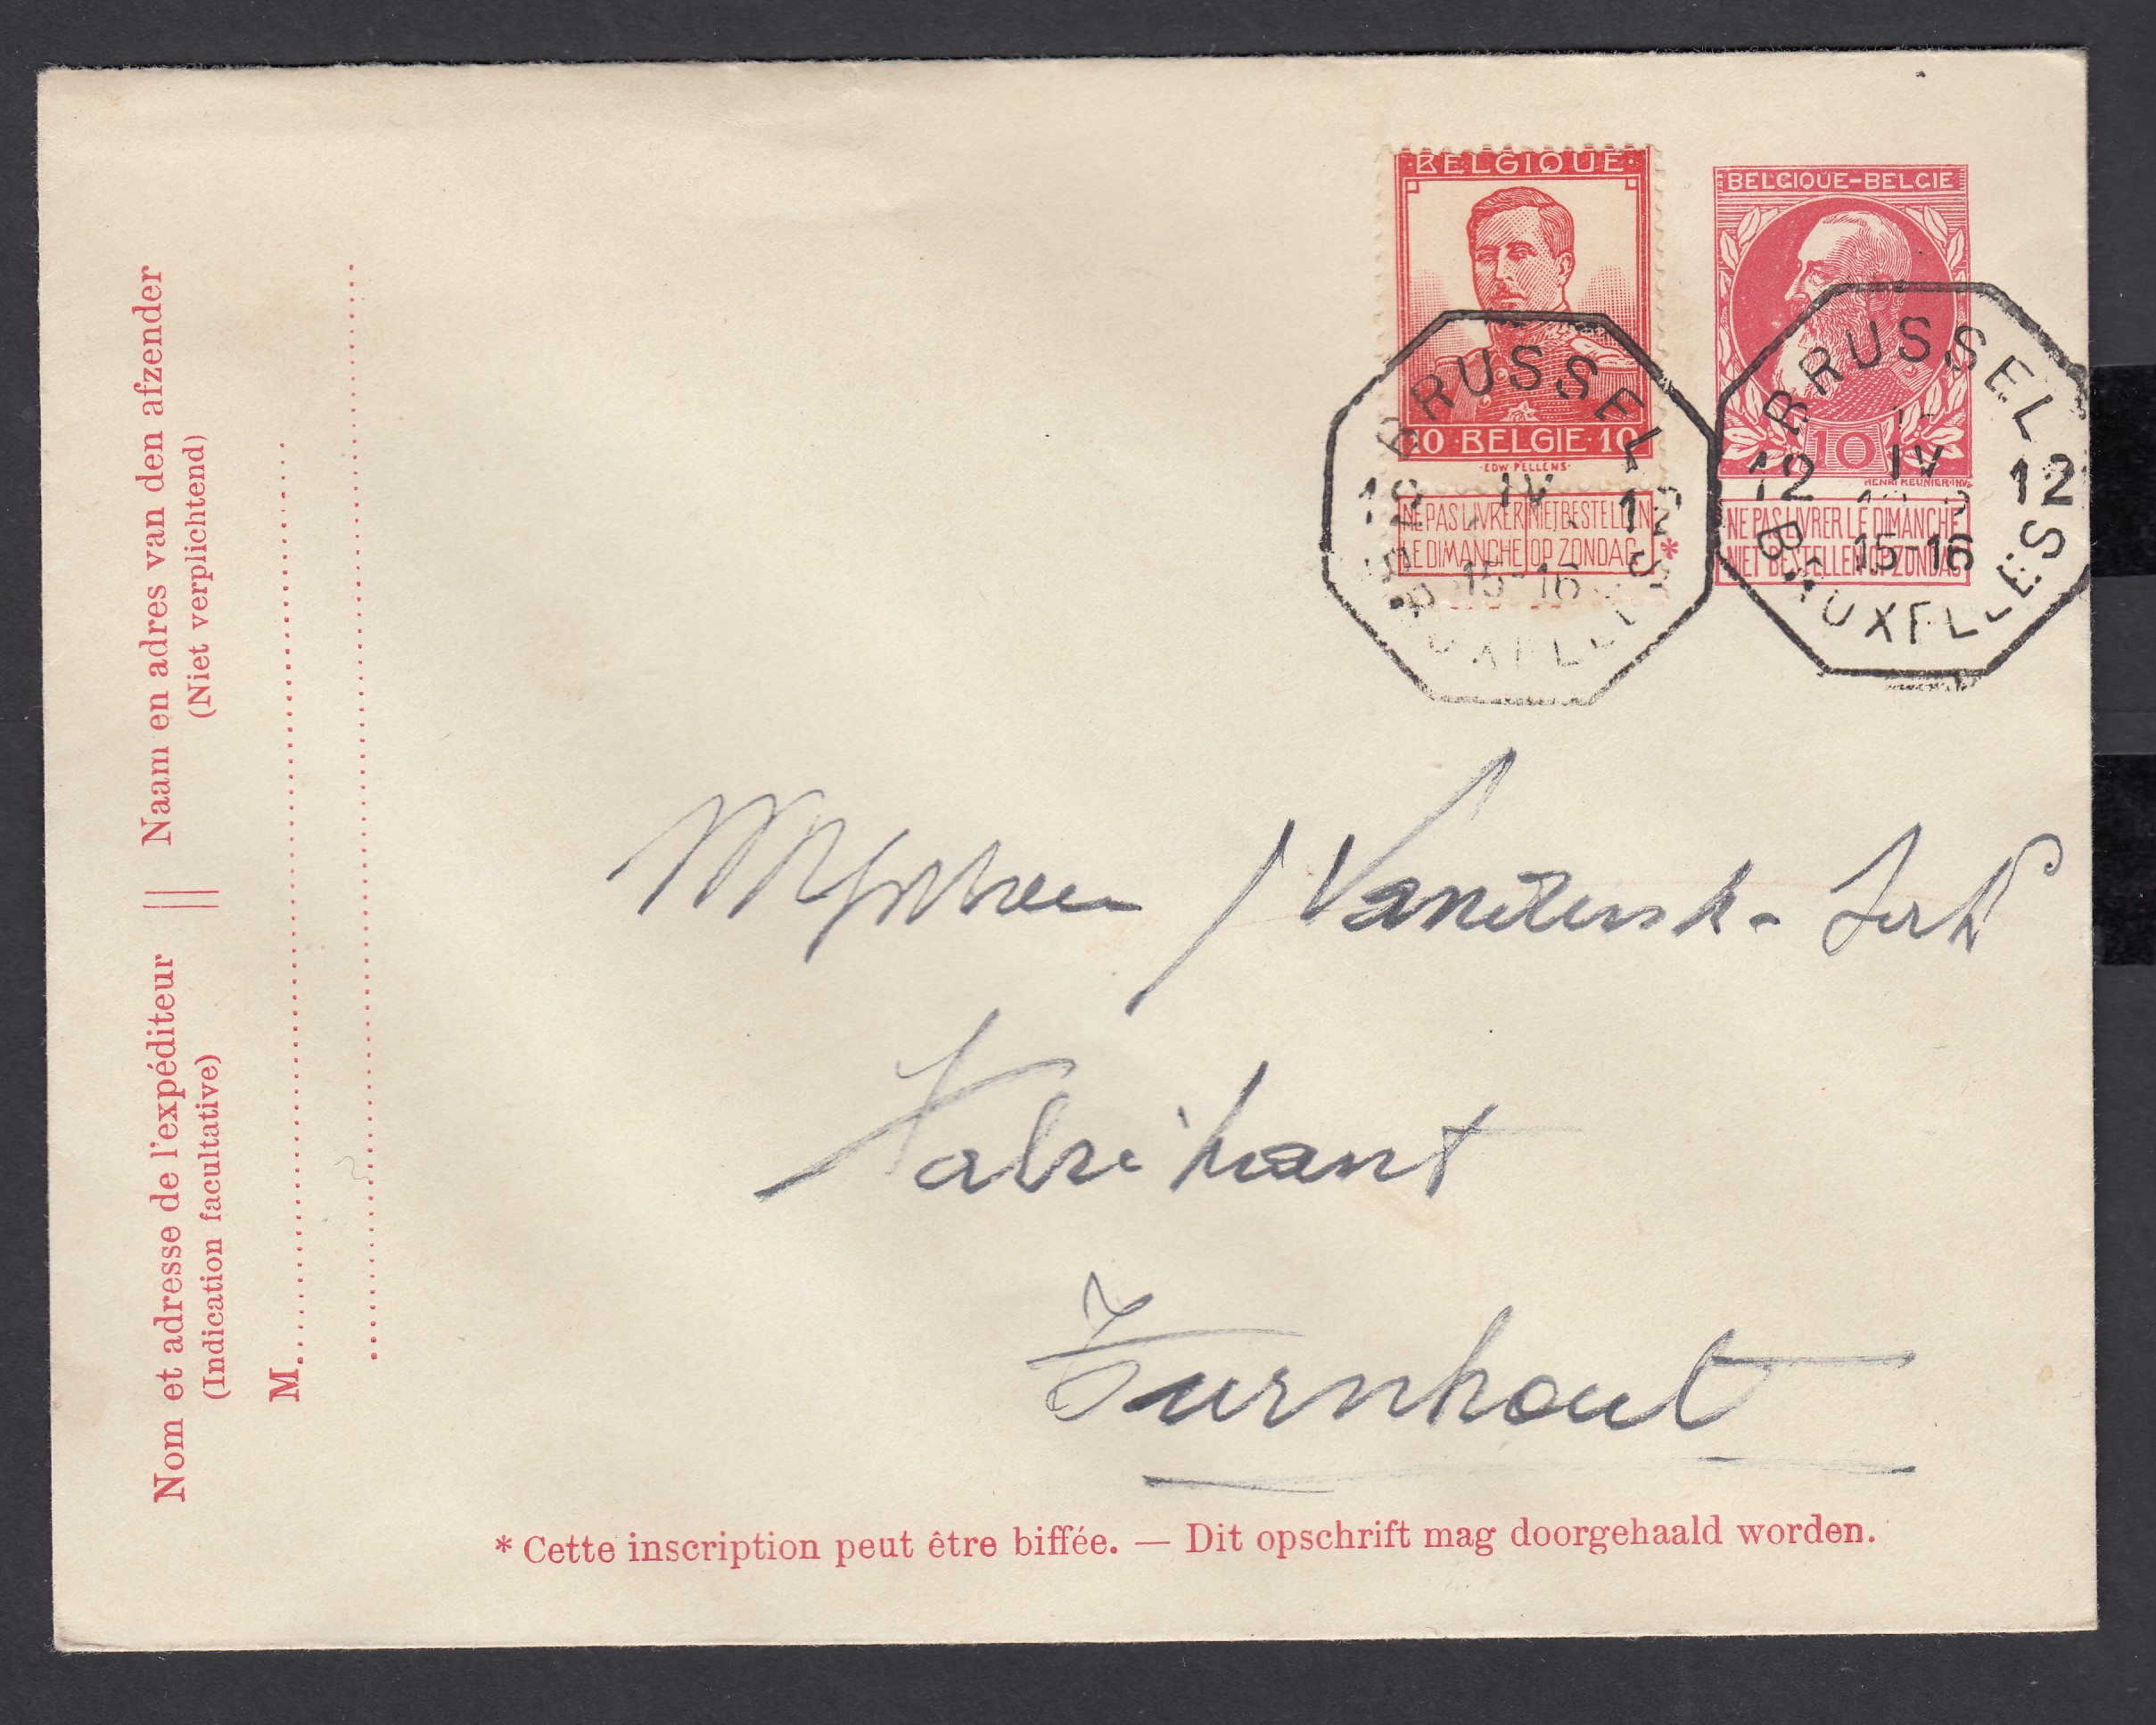 ·BELGIQUE·
10·BELGIE·10
·EDW PELLENS·
NE PAS LIVRER NIET BESTELLEN
LE DIMANCHE OP ZONDAG
*
BRUSSEL
12 IV 12
15-16
BRUXELLES
BELGIQUE-BELGIE
10
HENRI MEUNIER·INV.
NE PAS LIVRER LE DIMANCHE
NIET BESTELLEN OP ZONDAG
BRUSSEL
12 IV 12
15-16
BRUXELLES
Nom et adresse de l'expéditeur || Naam en adres van den afzender
(Indication facultative) (Niet verplichtend)
M
Fabrikant
Turnhout
* Cette inscription peut être biffée. — Dit opschrift mag doorgehaald worden.